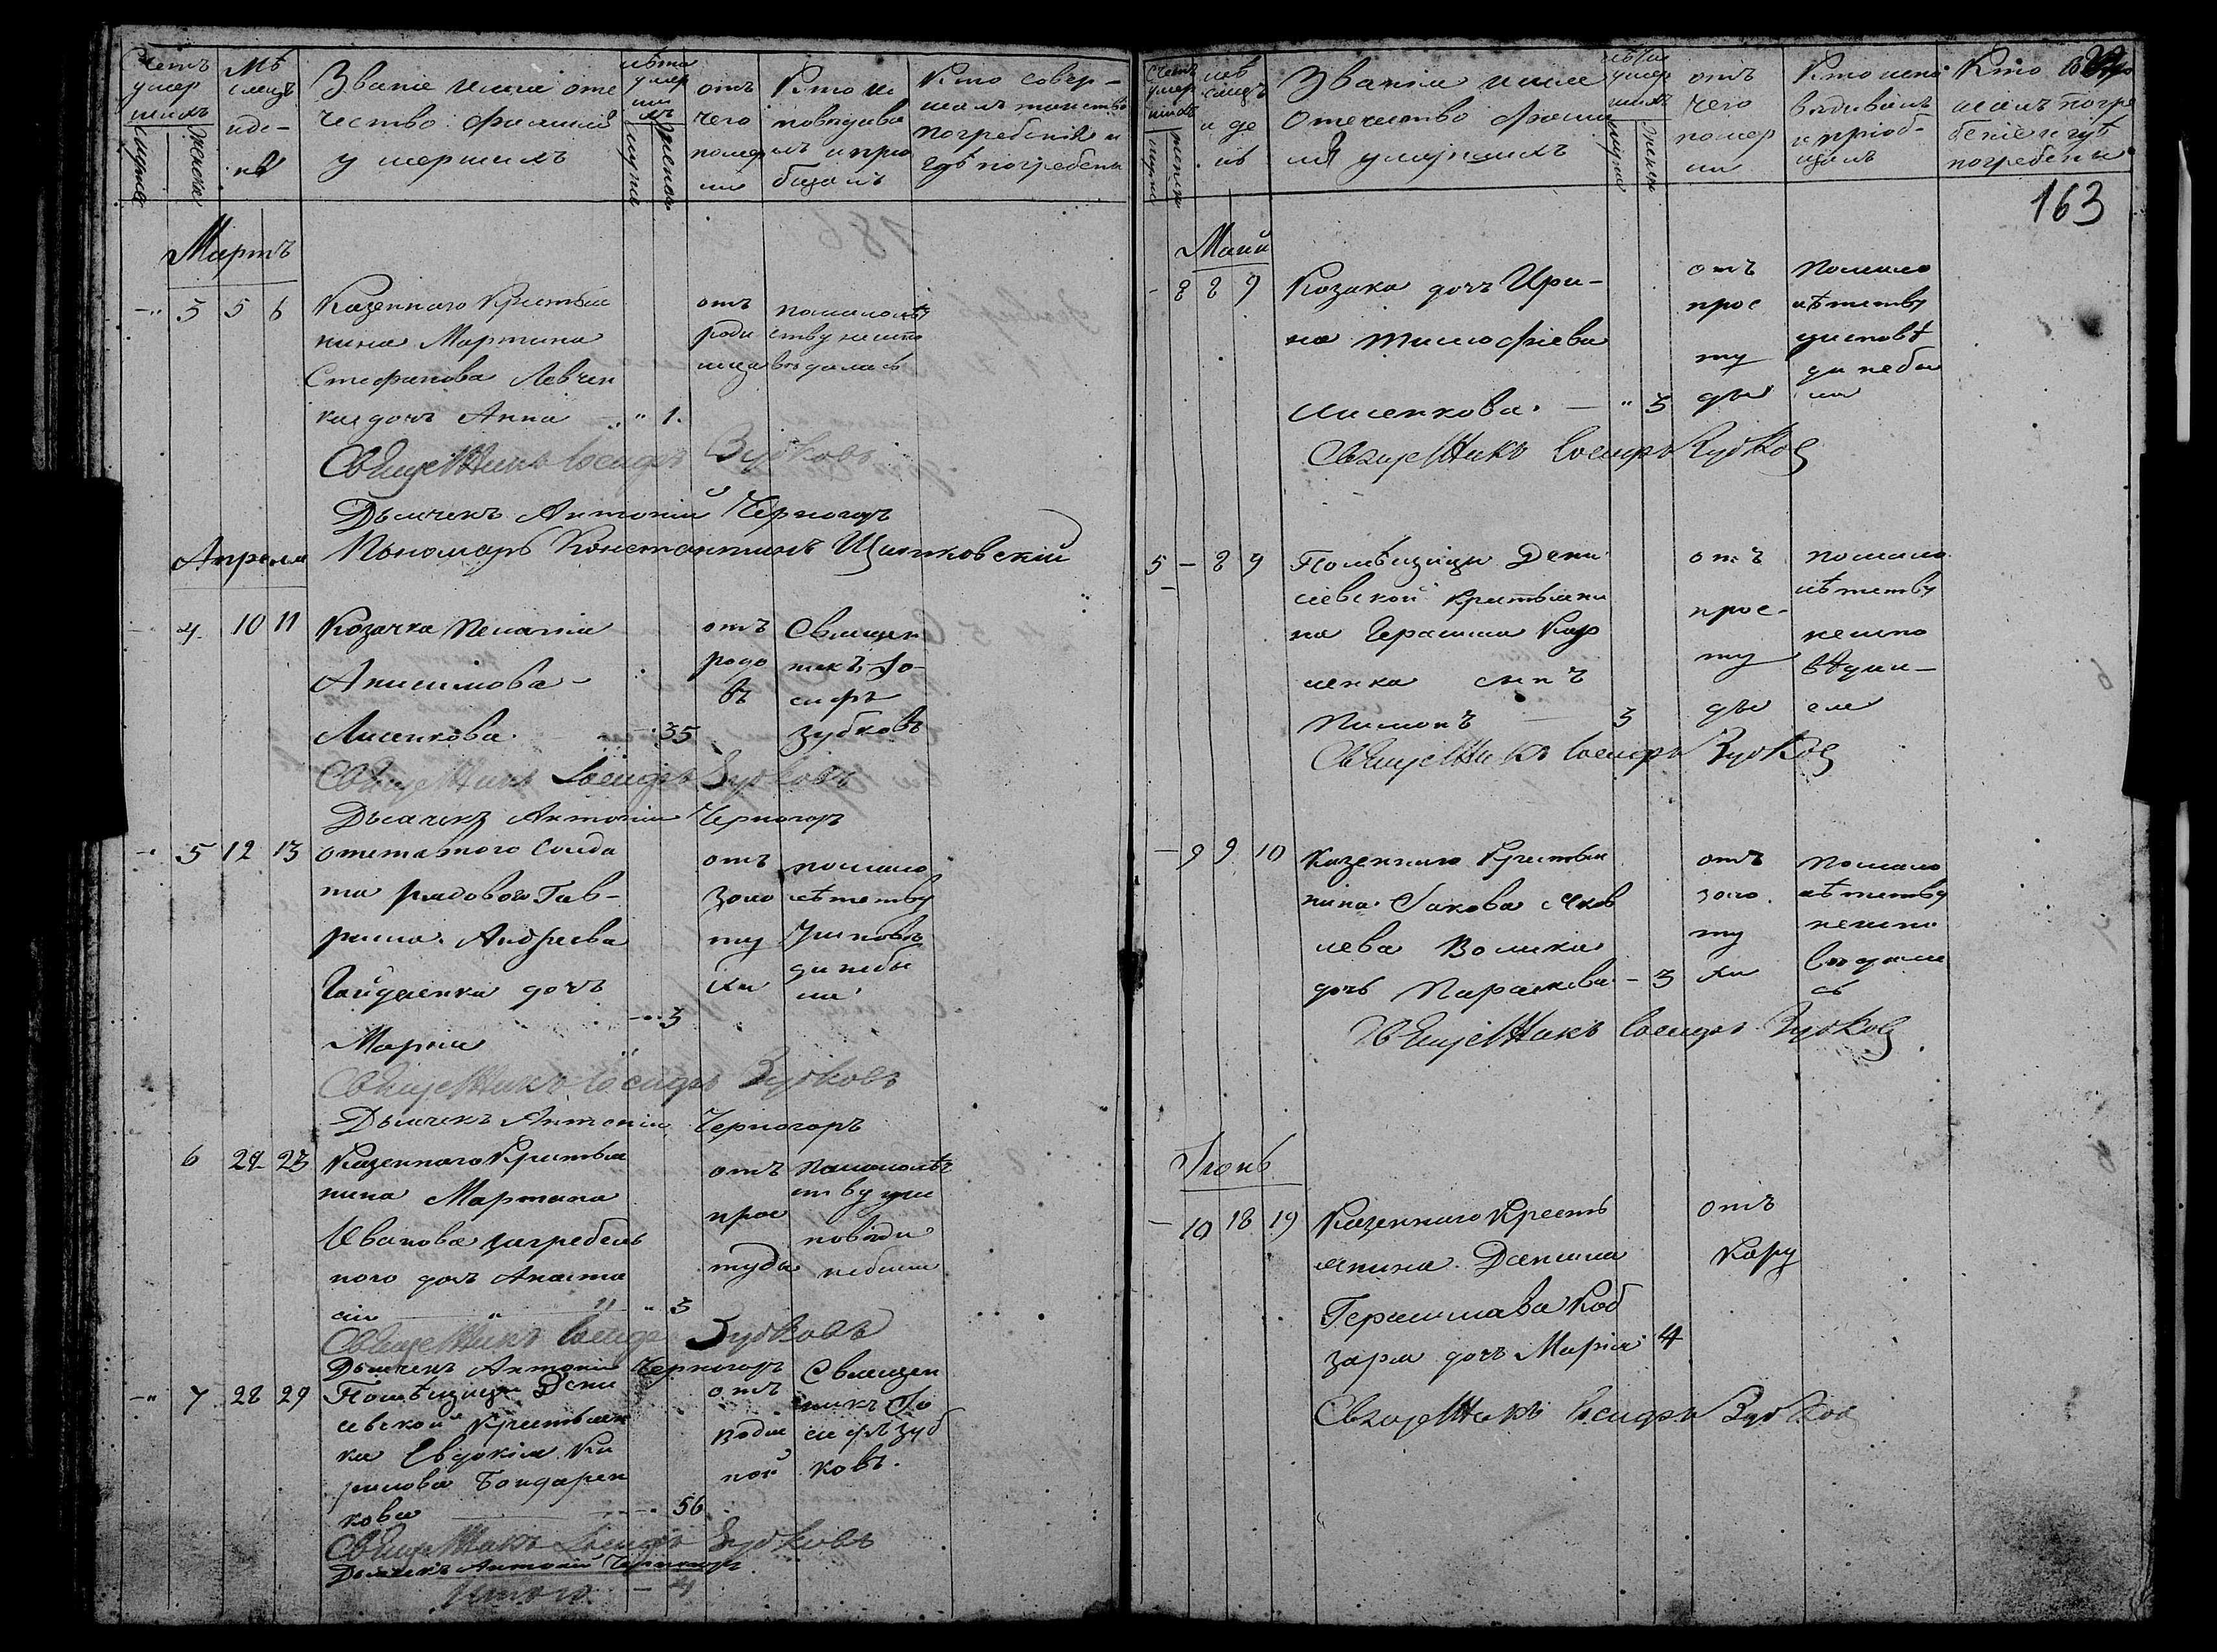 Счетъ умер шихъ
мужес
женск
Мѣ сяцъ идень
Званіе имя оте
чество фамилія
умершихъ
лѣта умер ши хъ
мужес
женск
отъ чего померли
Кто ис повѣдова лъ и прі общалъ
Кто совер-
шалъ таинство
погребенія и
гдѣ погребены
Мартъ
3 5 6
Казеннаго Крестья
нина Мартина
Стефанова Левчен
ка дочь Анна 1.
отъ роди мца
помалолѣт
ству неиспо
вѣдалась
Священникъ Іосифъ Зубковъ
Дьячекъ Антоній Черногоръ
Пономарь Константинъ
Апреля
4 10 11
Козачка Пелагія
Анисимова
Лисенкова 35
отъ родо въ
Священ
никъ Іо-
сифъ
Зубковъ
Священникъ Іосифъ Зубковъ
Дьячекъ Антоній Черногоръ
5 12 13
отставнаго Солда
та рядового Гав-
рила Андреева
Гайденка дочь
Марія 3
отъ золо ту хи
помало
лѣтству
Священникъ Іосифъ Зубковъ
Дьячекъ Антоній Черногоръ
6 22 23
Казеннаго Крестья
нина Мартина
Иванова загребель
ного дочь Анаста
сія 3
отъ прос туды
помалолѣт
ству
небыла
Священникъ Іосифъ Зубковъ
Дьячекъ Антоній Черногоръ
7 28 29
Помѣщицы Дени
севской Крестьян
ка Евдокія Ки
рилова Бондарен
кова 56
отъ водя ной
Священ
никъ Іо
сифъ Зуб
ковъ.
Священникъ Іосифъ Зубковъ
Дьячекъ Антоній Черногоръ
Итого
Счетъ умер шихъ
мужес
женск
мѣ сяцъ и де нь
Званія имя
Отечество Фами
лія умершихъ
лѣта умер шихъ
мужес
женск
отъ чего помер ли
Кто испо
вѣдывалъ
и пріоб-
щалъ
Кто
шалъ погре
беніе и гдѣ
погребены
163
Маій
8 8 9
Козака дочь Ири-
на Тимофіева
Лисенкова. 3
отъ прос ту ды
помало
лѣтству
Священникъ Іосифъ Зубков
5 8 9
Помѣщицы Дени
севской крестьяни
на Герасима Кар
ленка сынъ
Пимонъ 3
отъ прос- ту ды
помало
лѣтству
неиспо
вѣдыл-
ся
Священникъ Іосифъ Зубков
9 9 10
Казеннаго Крестьян
нина Іакова Яков
лева Волика
дочь Параскева 3
отъ золо ту хи
помало
лѣтству
неиспо
вѣдала
сь
Священникъ Іосифъ Зубков
Іюнь
10 18 19
Казеннаго Кресть
янина Данила
Герасимава Коб
заря дочь Марія 4
отъ
Кору
Священникъ Іосифъ Зубков